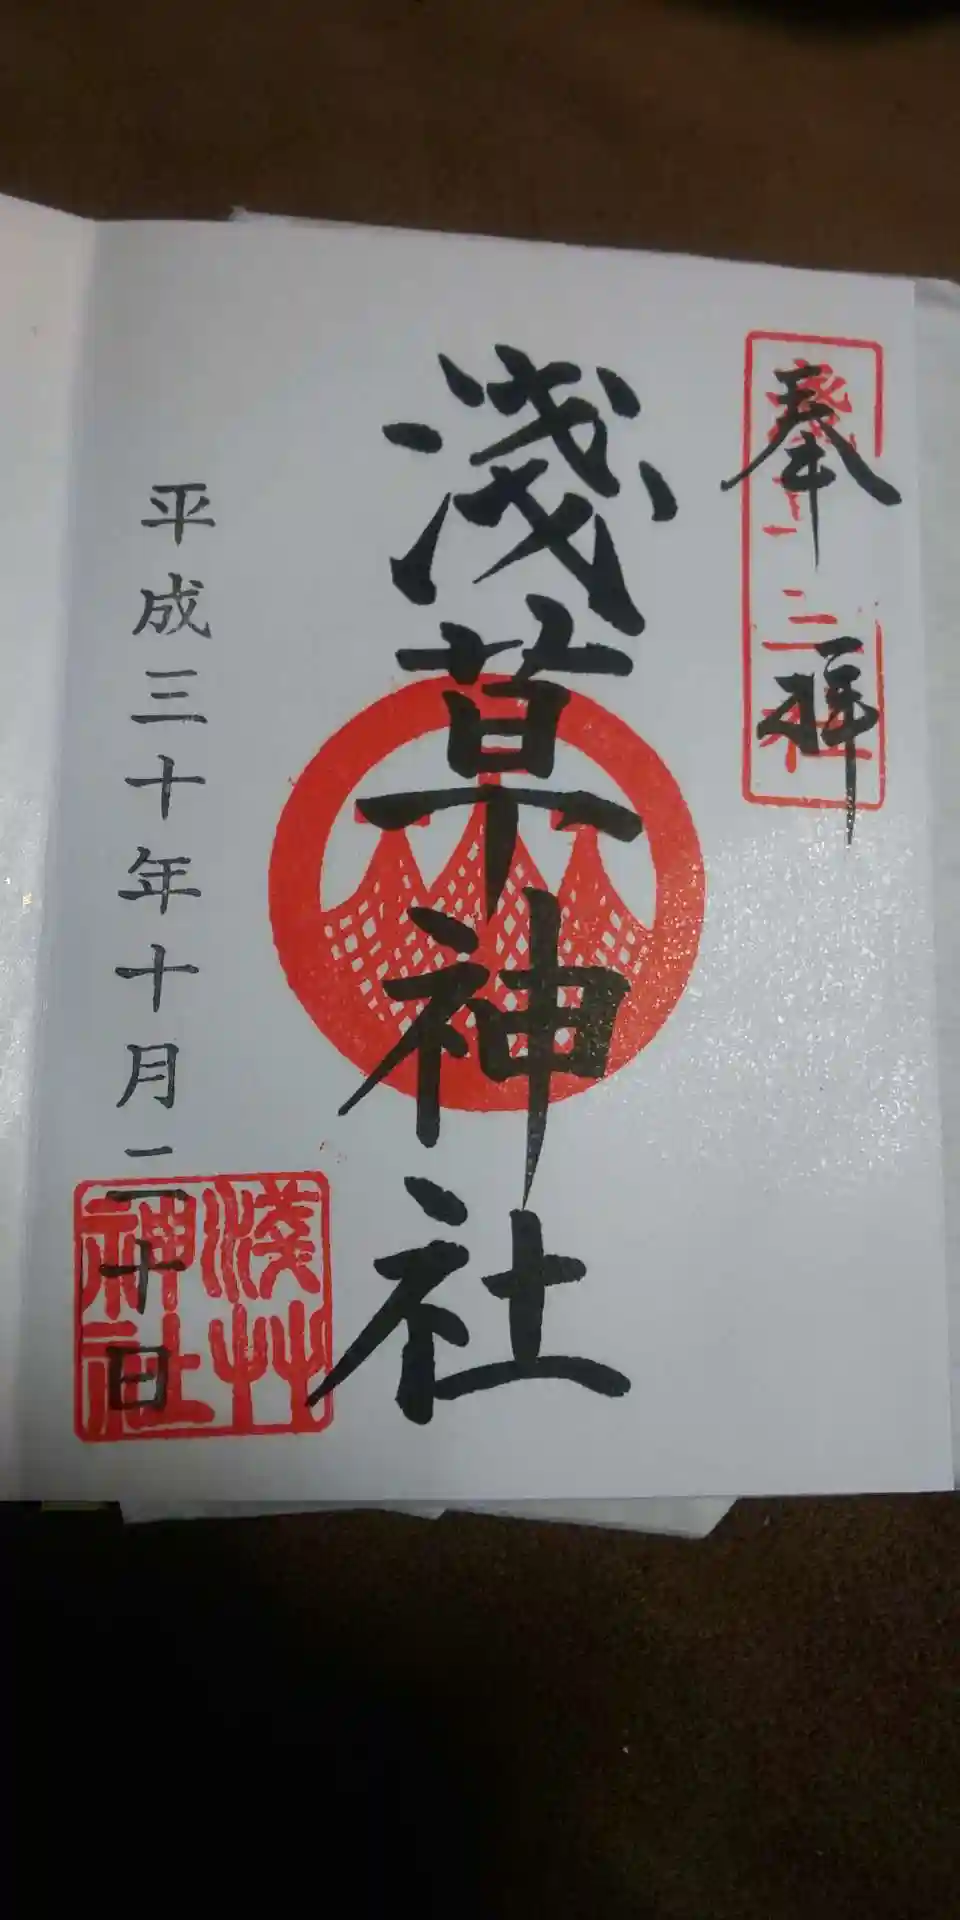 奉拝
淺草神社
平成三十年十月二十日
淺艸
神社